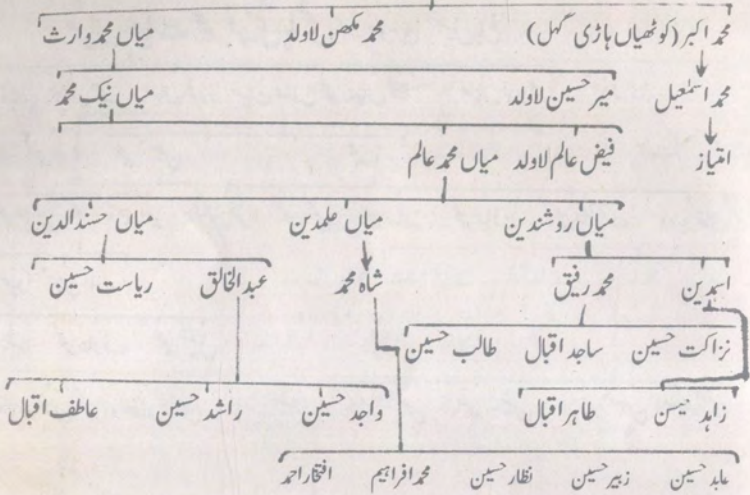 محمد اکبر (کوٹھیاں ہاڑی گہل) محمد مکھن لاولد میاں محمد وارث
محمد اسمٰعیل میر حسین لاولد میاں نیک محمد
امتیاز فیض عالم لاولد میاں محمد عالم
میاں روشندین میاں علمدین میاں حسندالدین
اسدین محمد رفیق شاہ محمد عبدالخالق ریاست حسین
نزاکت حسین ساجد اقبال طالب حسین
زاہد حسن طاہر اقبال واجد حسین راشد حسین عاطف اقبال
عابد حسین زبیر حسین نظار حسین محمد افراہیم افتخار احمد